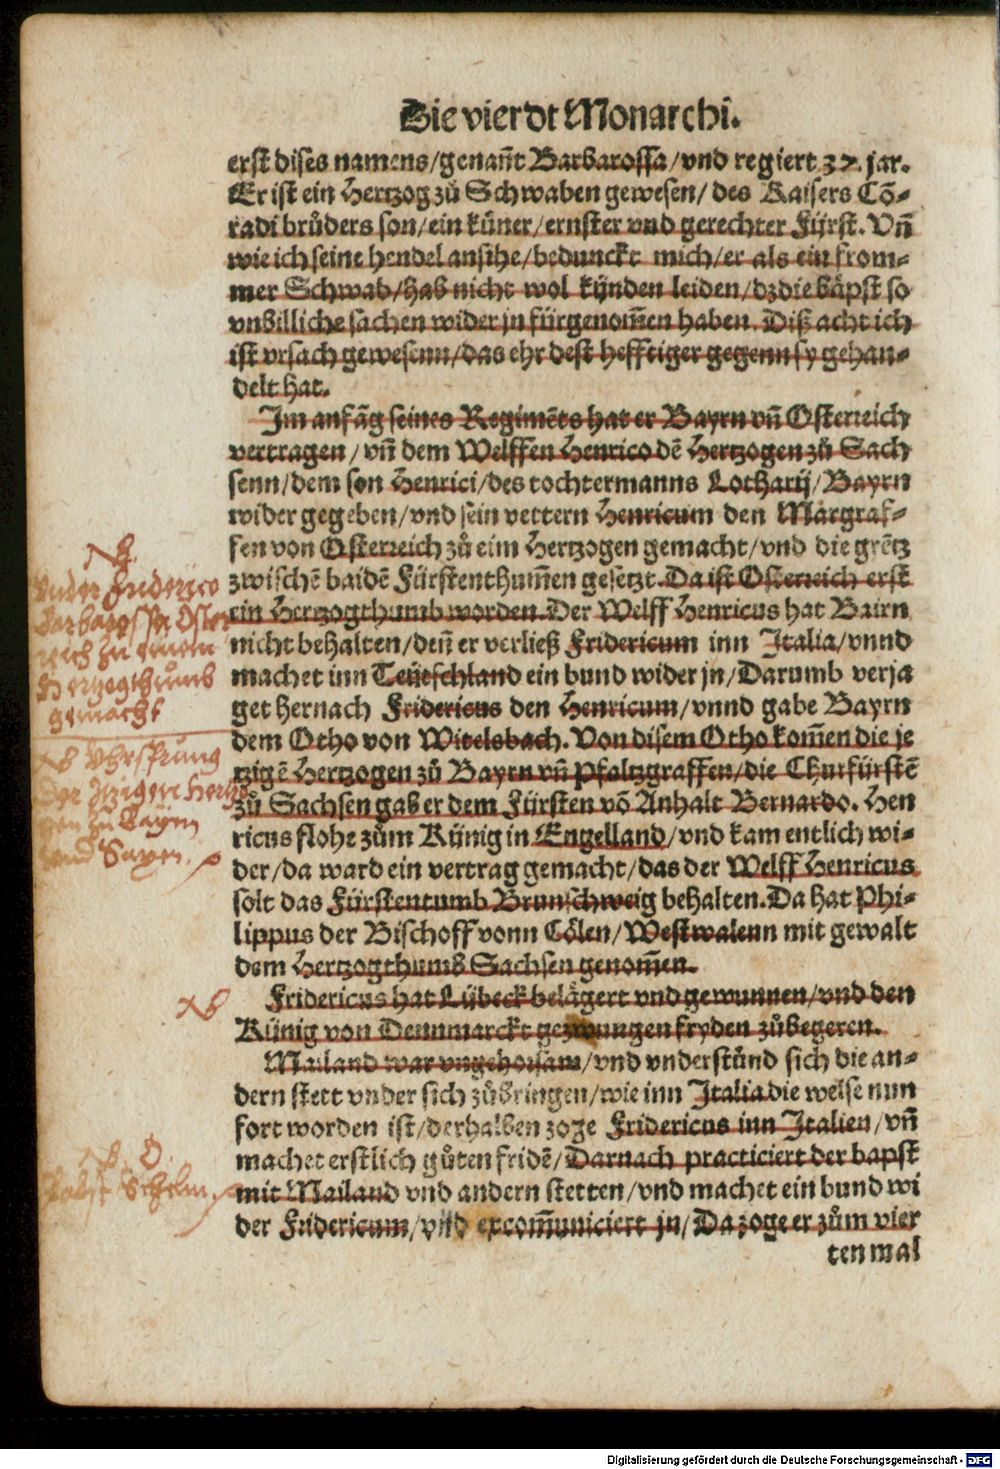 Die vierdt Monarchi.
erst dises namens/genañt Barbarossa/vnd regiert 37. jar.
Er ist ein Hertzog zů Schwaben gewesen/ des Kaisers Cõ-
radi brůders son/ein küner/ernster vnd gerechter Fürst. Vñ
wie ich seine hendel ansihe/beduncket mich/er als ein from-
mer Schwab/hab nicht wol künden leiden/dz die bäpst so
vnbilliche sachen wider jn fürgenom̃en haben. Diß acht ich
ist vrsach gewesenn/das ehr dest hefftiger gegenn sy gehan-
delt hat.
Im anfãg seines Regimẽts hat er Bayrn vñ Osterreich
vertragen/ vñ dem Welffen Henrico dẽ Hertzogen zů Sach
senn/dem son Henrici/des tochtermanns Lotharij/Bayrn
wider gegeben/vnd sein vettern Henricum den Marggraf-
fen von Osterreich zů eim Hertzogen gemacht/vnd die grẽtz
zwischẽ baidẽ Fürstenthum̃en gesetzt. Da ist Osterreich erst
ein Hertzogthumb worden. Der Welff Henricus hat Bairn
nicht behalten/deñ er verließ Fridericum inn Italia/vnnd
machet inn Teütschland ein bund wider jn/Darumb verja
get hernach Fridericus den Henricum/vnnd gabe Bayrn
dem Otho von Witelsbach. Von disem Otho kom̃en die je
tzigẽ Hertzogen zů Bayrn vñ Pfaltzgraffen/die Churfürstẽ
zů Sachsen gab er dem Fürsten võ Anhalt Bernardo. Hen
ricus flohe zům Künig in Engelland/vnd kam entlich wi-
der/da ward ein vertrag gemacht/das der Welff Henricus
solt das Fürstentumb Brunschweig behalten. Da hat Phi-
lippus der Bischoff vonn Cölen/Westwalenn mit gewalt
dem Hertzogthumb Sachsen genom̃en.
Fridericus hat Lübeck belägert vnd gewunnen/vnd den
Künig von Dennmarckt gezwungen fryden zůbegeren.
Mailand war vngehorsam/vnd vnderstůnd sich die an-
dern stett vnder sich zůbringen/wie inn Italia die welse nun
fort worden ist/derhalben zoge Fridericus inn Italien/vñ
machet erstlich gůten fridẽ/Darnach practiciert der bapst
mit Mailand vnd andern stetten/vnd machet ein bund wi
der Fridericum/vnd excom̃uniciert jn/Da zoge er zům vier
ten mal
NB.
Vnder Friderico
Barbarossa Oster
reich zu einem
Hertzogthumb
gemacht
NB Vhrsprung
der jtzigen Hertzo
gen zu Bayrn
vnd Saxen.
NB
NB. O.
Pabst Schelm.
Digitalisierung gefördert durch die Deutsche Forschungsgemeinschaft - DFG